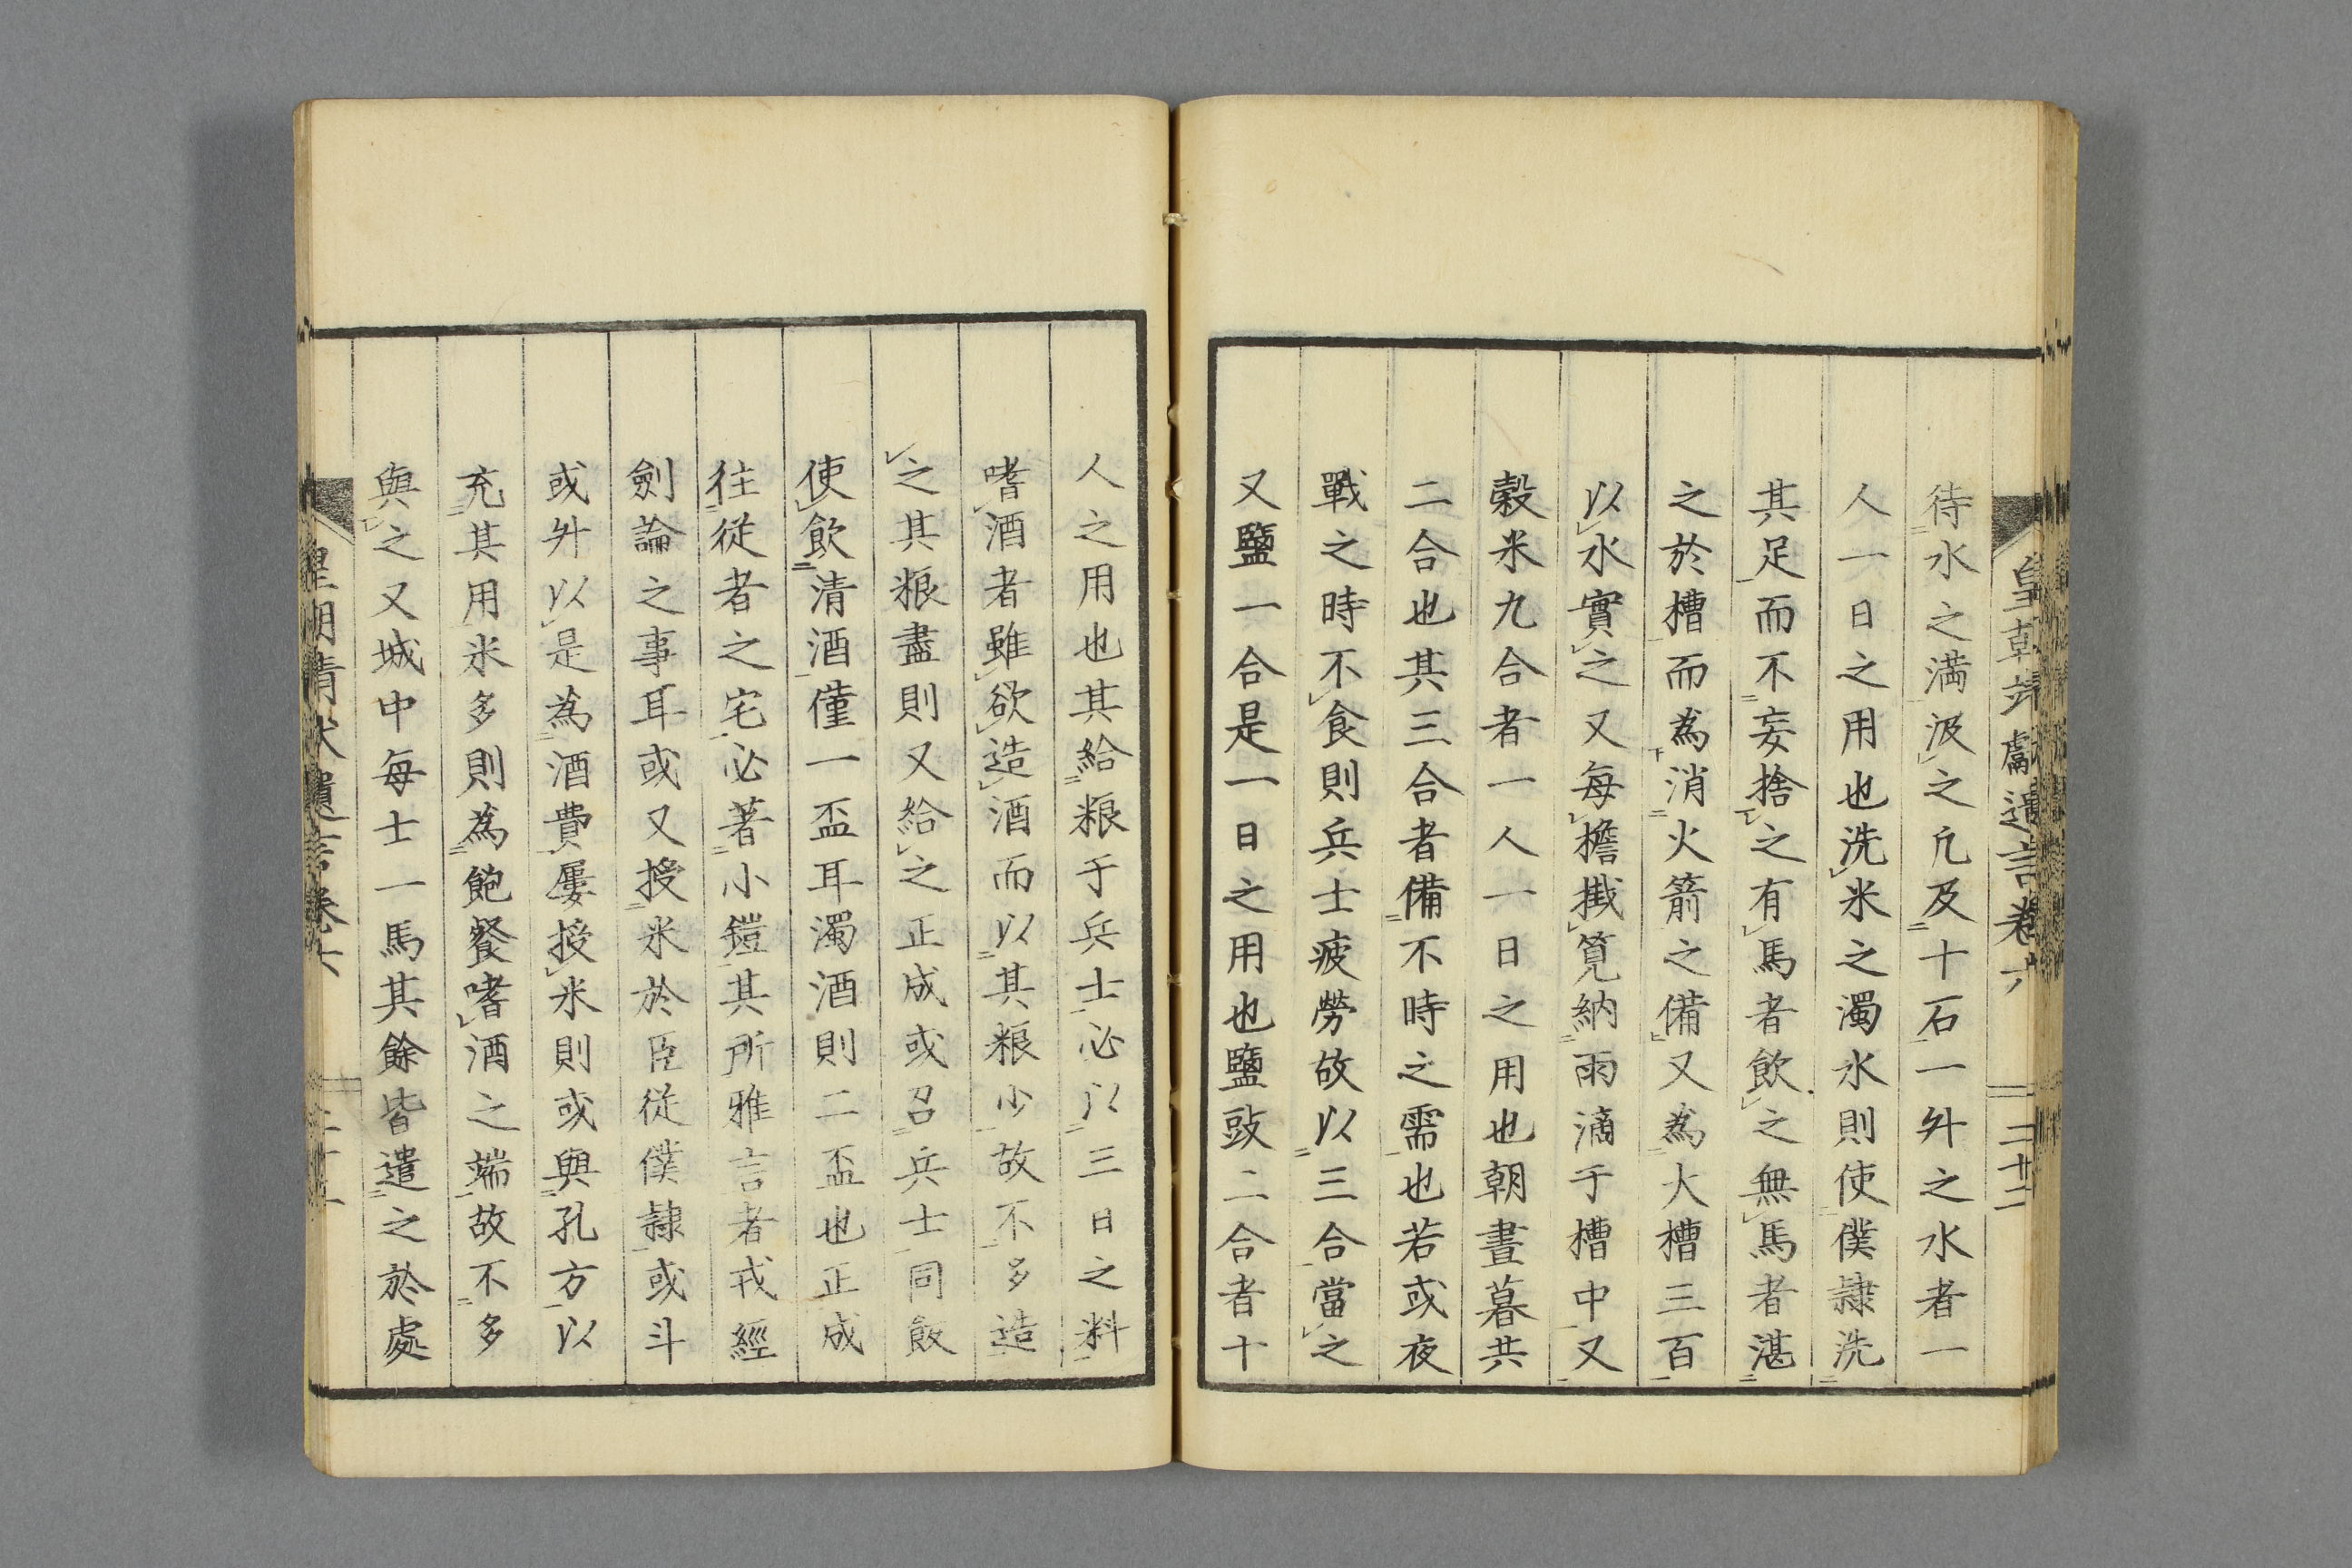 待水之満汲之凢及十石一升之水者一
人一日之用也洗米之濁水則使僕隷洗
其足而不妄捨之有馬者飲之無馬者湛
之於槽而為消火箭之備又為大槽三百
以水實之又毎檐掛筧納雨滴于槽中又
穀米九合者一人一日之用也朝晝暮共
二合也其三合者備不時之需也若或夜
戰之時不食則兵士疲勞故以三合當之
又鹽一合是一日之用也鹽豉二合者十
人之用也其給粮于兵士必以三日之料
嗜酒者雖欲造酒而以其粮少故不多造
之其粮盡則又給之正成或召兵士同飯
使飲清酒僅一盃耳濁酒則二盃也正成
往從者之宅必著小鎧其所雅言者戎經
劍論之事耳或又授米於臣從僕隷或斗
或升以是為酒費屢授米則或與孔方以
充其用米多則為飽餐嗜酒之端故不多
與之又城中毎士一馬其餘皆遣之於處